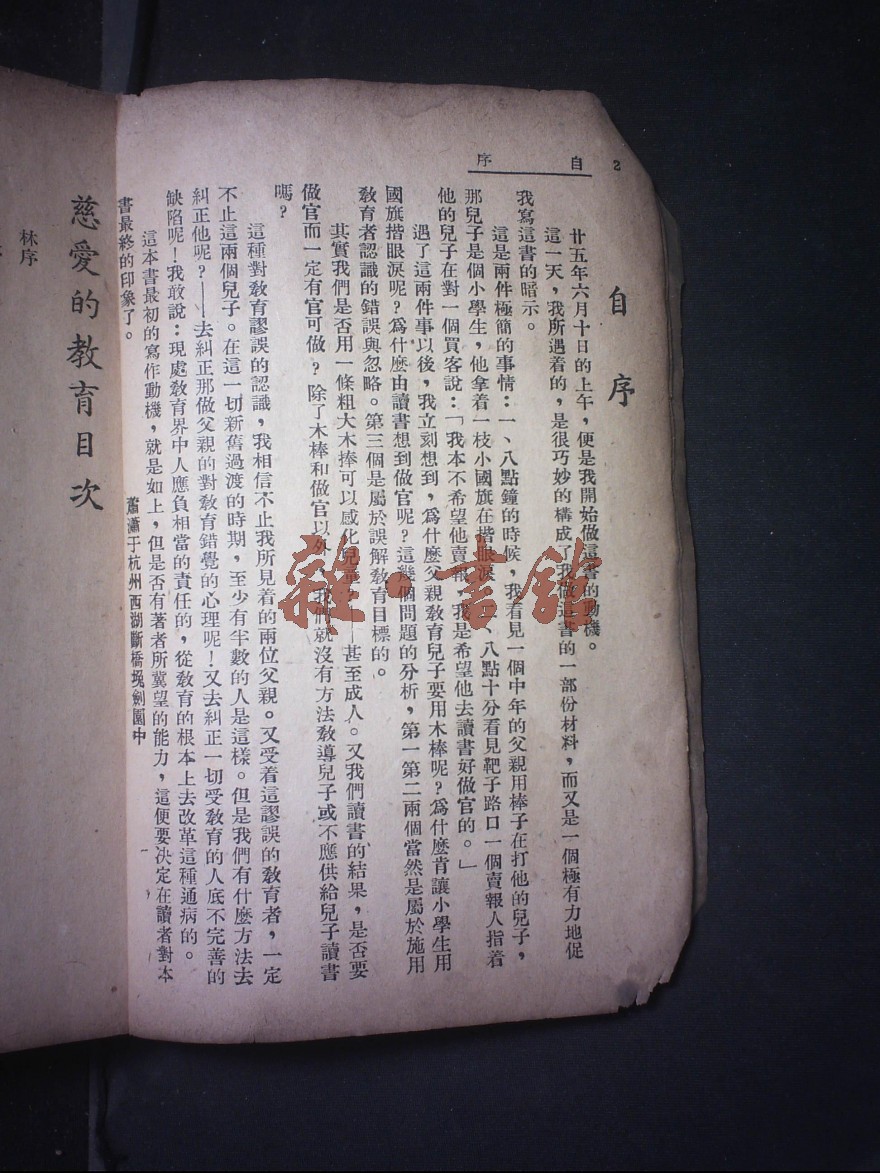 2
自序
自序
廿五年六月十日的上午，便是我開始做這書的動機。
這一天，我所遇着的，是很巧妙的構成了我做這書的一部份材料，而又是一個極有力地促
我寫這書的暗示。
這是兩件極簡的事情：一、八點鐘的時候，我看見一個中年的父親用棒子在打他的兒子，
那兒子是個小學生，他拿着一枝小國旗在揩眼淚、八點十分看見靶子路口一個賣報人指着
他的兒子在對一個買客說：「我本不希望他賣報，我是希望他去讀書好做官的。」
遇了這兩件事以後，我立刻想到，爲什麼父親敎育兒子要用木棒呢？爲什麼肯讓小學生用
國旗揩眼淚呢？爲什麼由讀書想到做官呢？這幾個問題的分析，第一第二兩個當然是屬於施用
敎育者認識的錯誤與忽略。第三個是屬於誤解敎育目標的。
其實我們是否用一條粗大木捧可以感化兒童——甚至成人。又我們讀書的結果，是否要
做官而一定有官可做？除了木棒和做官以外，我們就沒有方法敎導兒子或不應供給兒子讀書
嗎？
這種對敎育謬誤的認識，我相信不止我所見着的兩位父親。又受着這謬誤的敎育者，一定
不止這兩個兒子。在這一切新舊過渡的時期，至少有半數的人是這樣。但是我們有什麼方法去
糾正他呢？——去糾正那做父親的對敎育錯覺的心理呢！又去糾正一切受敎育的人底不完善的
缺陷呢！我敢說：現處敎育界中人應負相當的責任的，從敎育的根本上去改革這種通病的。
這本書最初的寫作動機，就是如上，但是否有著者所冀望的能力，這便要決定在讀者對本
書最終的印象了。
蕭瀟于杭州西湖斷橋堍劍園中
慈愛的教育目次
林序
雜·書館